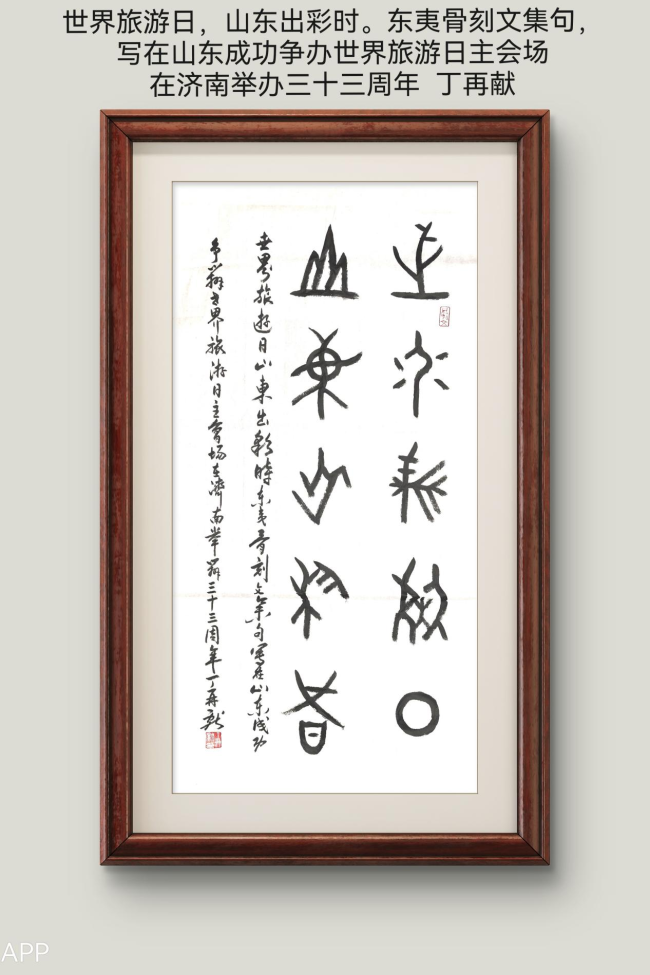 世界旅游日，山东出彩时。东夷骨刻文集句，
写在山东成功争办世界旅游日主会场
在济南举办三十三周年 丁再献
世界旅遊日山東出彩時东夷骨刻文集句寫在山东成功
争辦世界旅游日主會场在濟南举辦三十三周年丁再献
APP